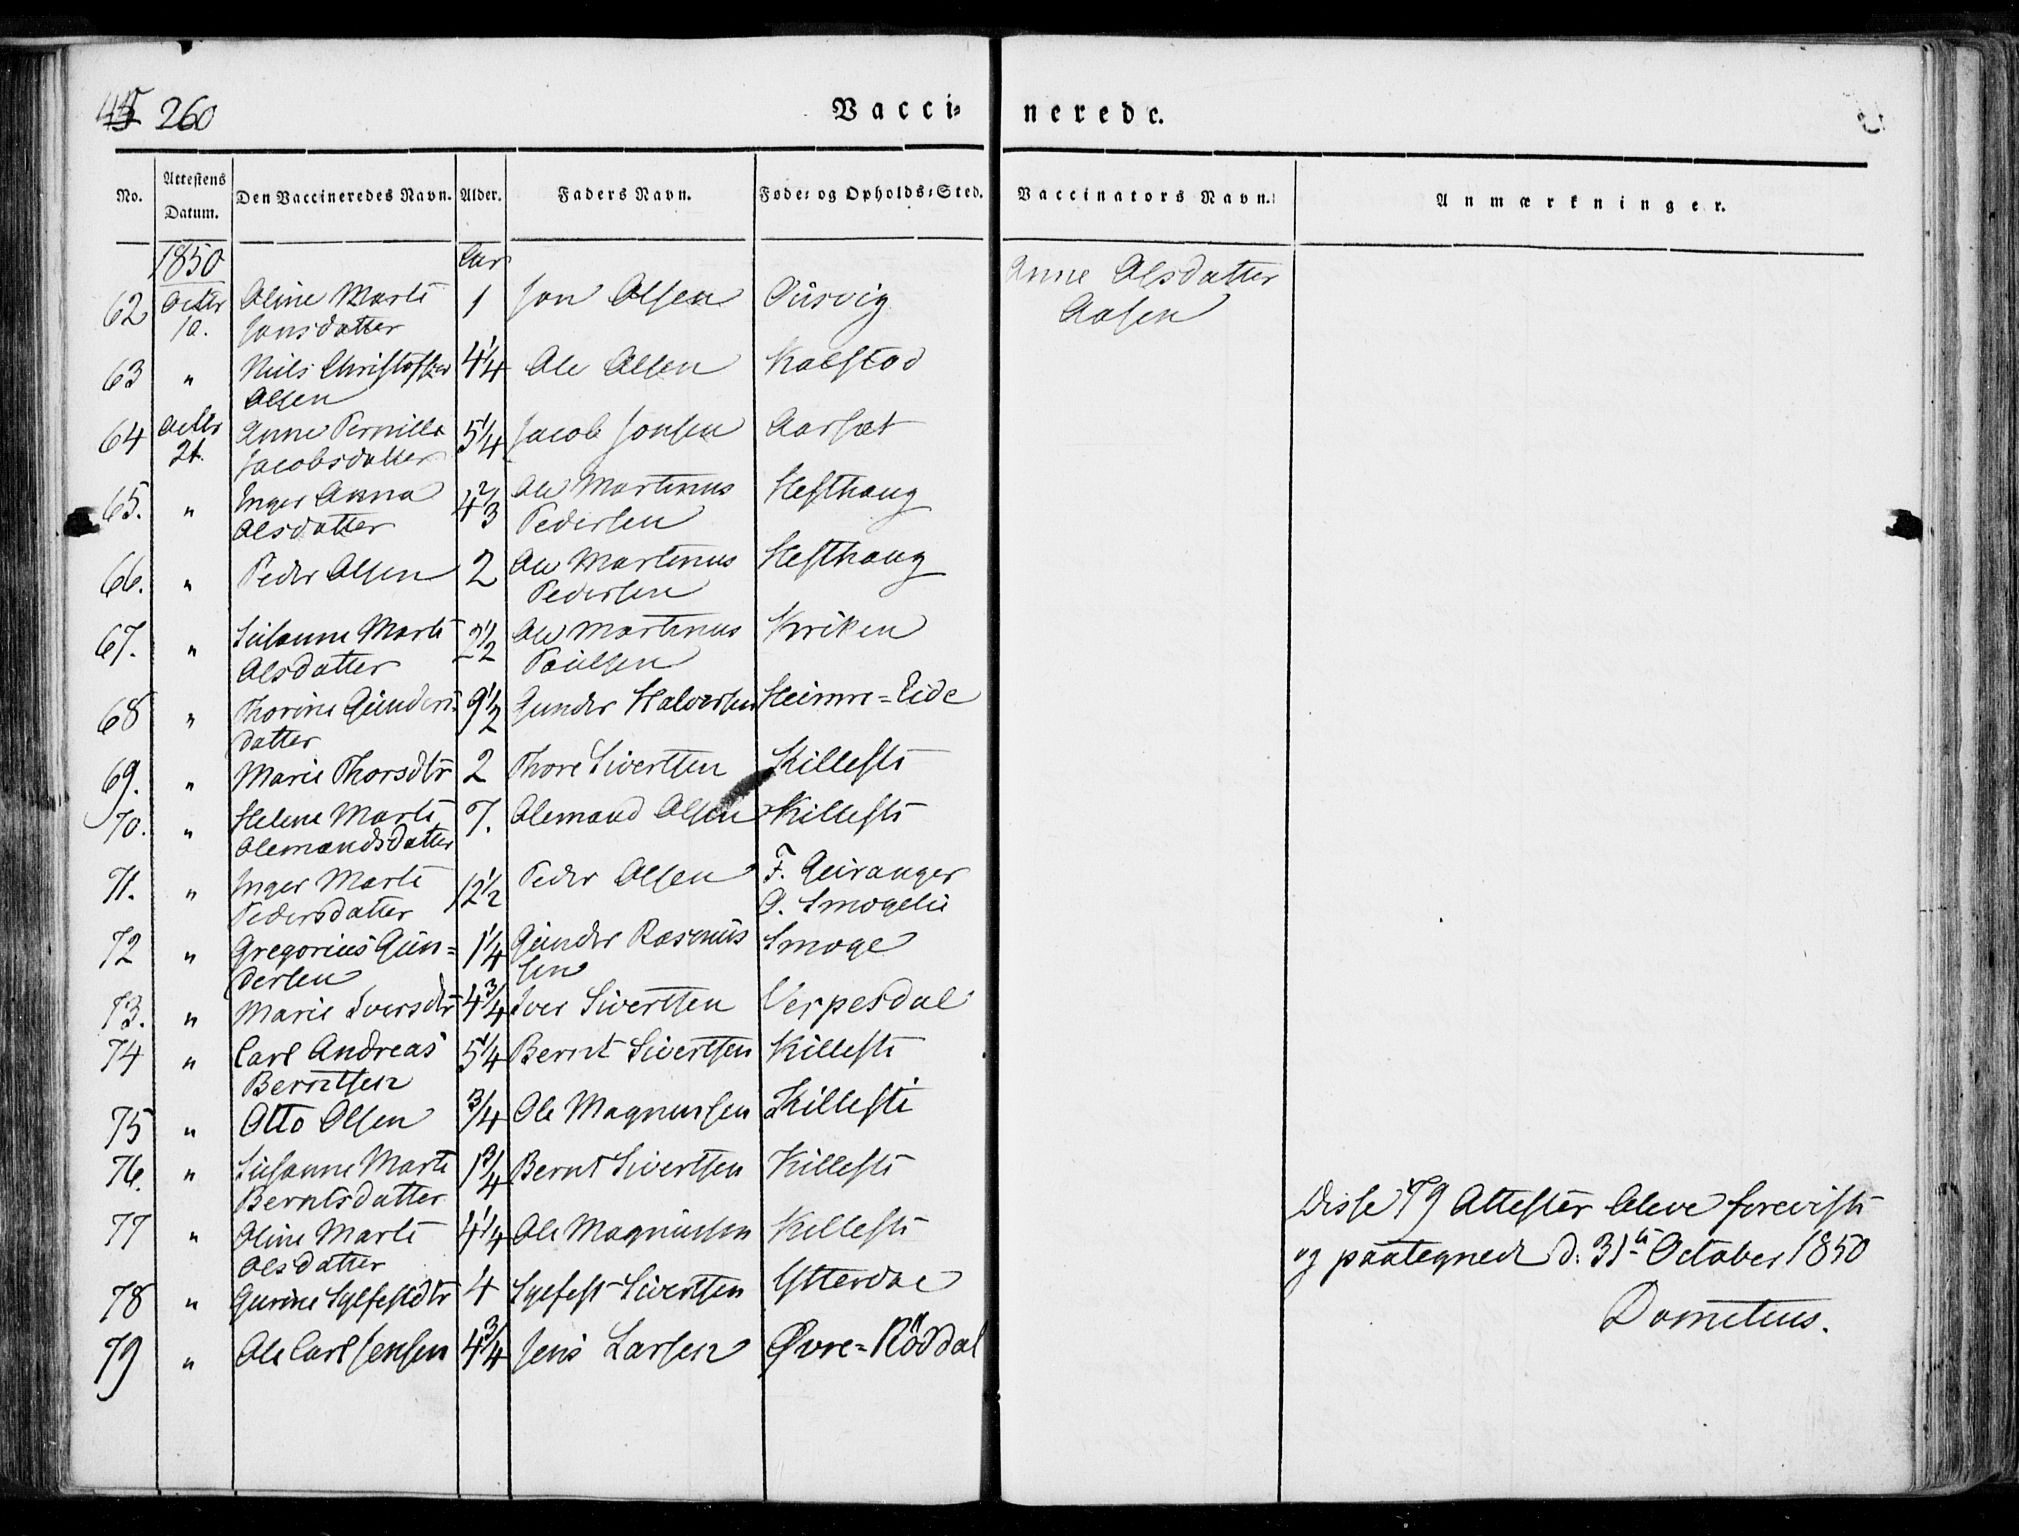 45 260 Vaccinerede.
No. Attestens Datum. Den Vaccineredes Navn. Alder. Faders Navn. Føde- og Opholds-Sted. Vaccinators Navn. Anmærkninger.
1850 Aar
62 Octbr 10. Oline Marte Jonsdatter 1 Jon Olsen Anne Olsdatter Aasen
63 " Niels Christoffer Olsen 4 1/4 Ole Olsen Kaldstad
64 Octbr 21. Anne Pernille Jacobsdatter 5 1/4 Jacob Jonsen Aarset
65. " Inger Anna Olsdatter 4 2/3 Ole Martinus Pedersen Hesthaug
66. " Peder Olsen 2 Ole Martinus Pedersen Hesthaug
67. " Susanne Marte Olsdatter 2 1/2 Ole Martinus Paulsen Kriken
68 " Thorine Gunders- datter 9 1/2 Gunder Halvorsen Heimre-Eide
69. " Marie Thorsdtr 2 Thore Sivertsen Killesti
70. " Helene Marte Olemandsdatter 7. Olemand Olsen Killesti
71. " Inger Marte Pedersdatter 12 1/2 Peder Olsen F. Geiranger O. Smogelie
72 " Gregorius Gun= dersen 1 1/4 Gunder Rasmus sen Smoge
73. " Marie Iversdtr 4 3/4 Iver Sivertsen Vespesdal
74 " Carl Andreas Berntsen 5 1/4 Bernt Sivertsen Killesti
75 " Otto Olsen 3/4 Ole Magnussen Killesti
76. " Susanne Marte Berntsdatter 1 3/4 Bernt Sivertsen Killesti
77 " Oline Marte Olsdatter 4 1/4 Ole Magnussen Killesti
78 " Gurine Sylfestdtr 4 Sylfest Sivertsen Ytterdal
79 " Ole Carl Jensen 4 3/4 Jens Larsen Øvre-Röddal
Disse 79 Attester bleve foreviste
og paategnede d: 31te October 1850